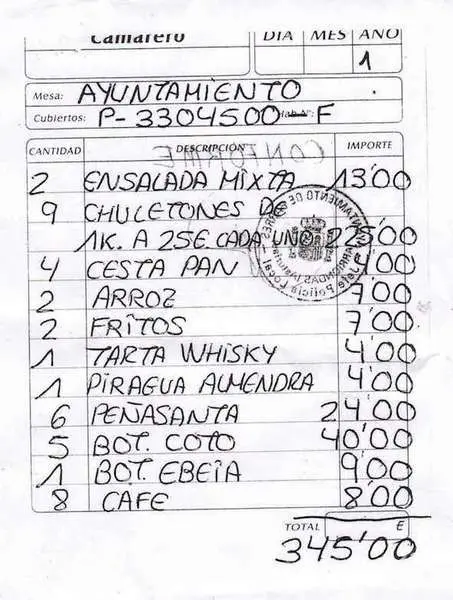 Camarero DIA MES AÑO
1
Mesa: AYUNTAMIENTO
Cubiertos: P-3304500-F
CANTIDAD DESCRIPCIÓN IMPORTE
CONFORME
2 ENSALADA MIXTA 13'00
9 CHULETONES DE
1K. A 25E CADA UNO 225'00
4 CESTA PAN 4'00
2 ARROZ 7'00
2 FRITOS 7'00
1 TARTA WHISKY 4'00
1 PIRAGUA ALMENDRA 4'00
6 PEÑASANTA 24'00
5 BOT. COTO 40'00
1 BOT. EBEIA 9'00
8 CAFE 8'00
TOTAL E
345'00